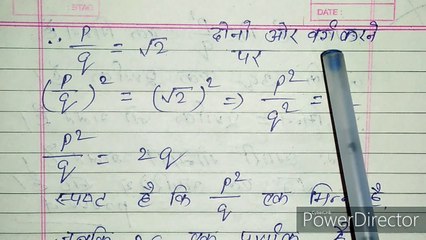 DATE:
∴ p/q = √2 दोनो ओर वर्ग करने
पर
(p/q)² = (√2)² ⇒ p²/q² =
p²/q = 2q
स्पष्ट है कि p²/q एक भिन्न है
जबकि 2q एक पूर्णांक है
PowerDirector